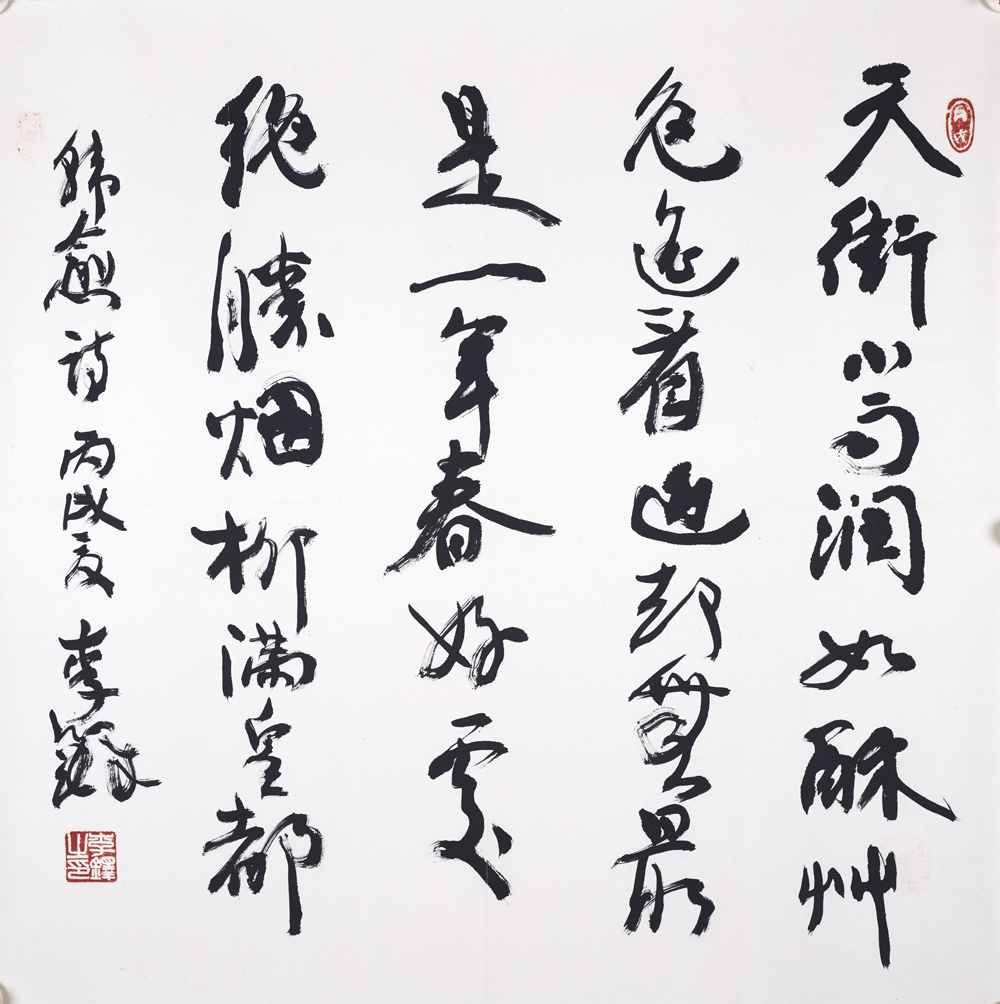 天街小雨润如酥艸
色遥看近却無最
是一年春好處
绝勝烟柳满皇都
韩愈诗 丙戌夏 李铎
李鐸之印